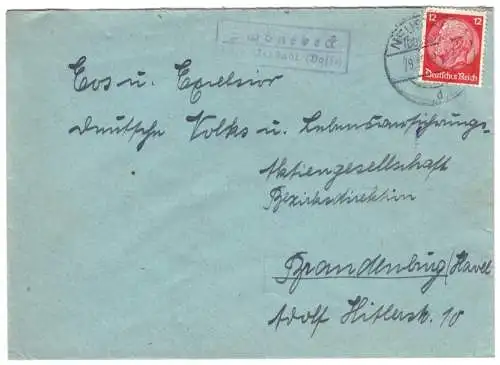 12 12
Deutsches Reich
NEUS
Eos u. Excelsior
deutsche Volks u. Lebensversicherungs-
Aktiengesellschaft
Bezirksdirektion
Brandenburg/Havel
Adolf Hitlerstr. 10